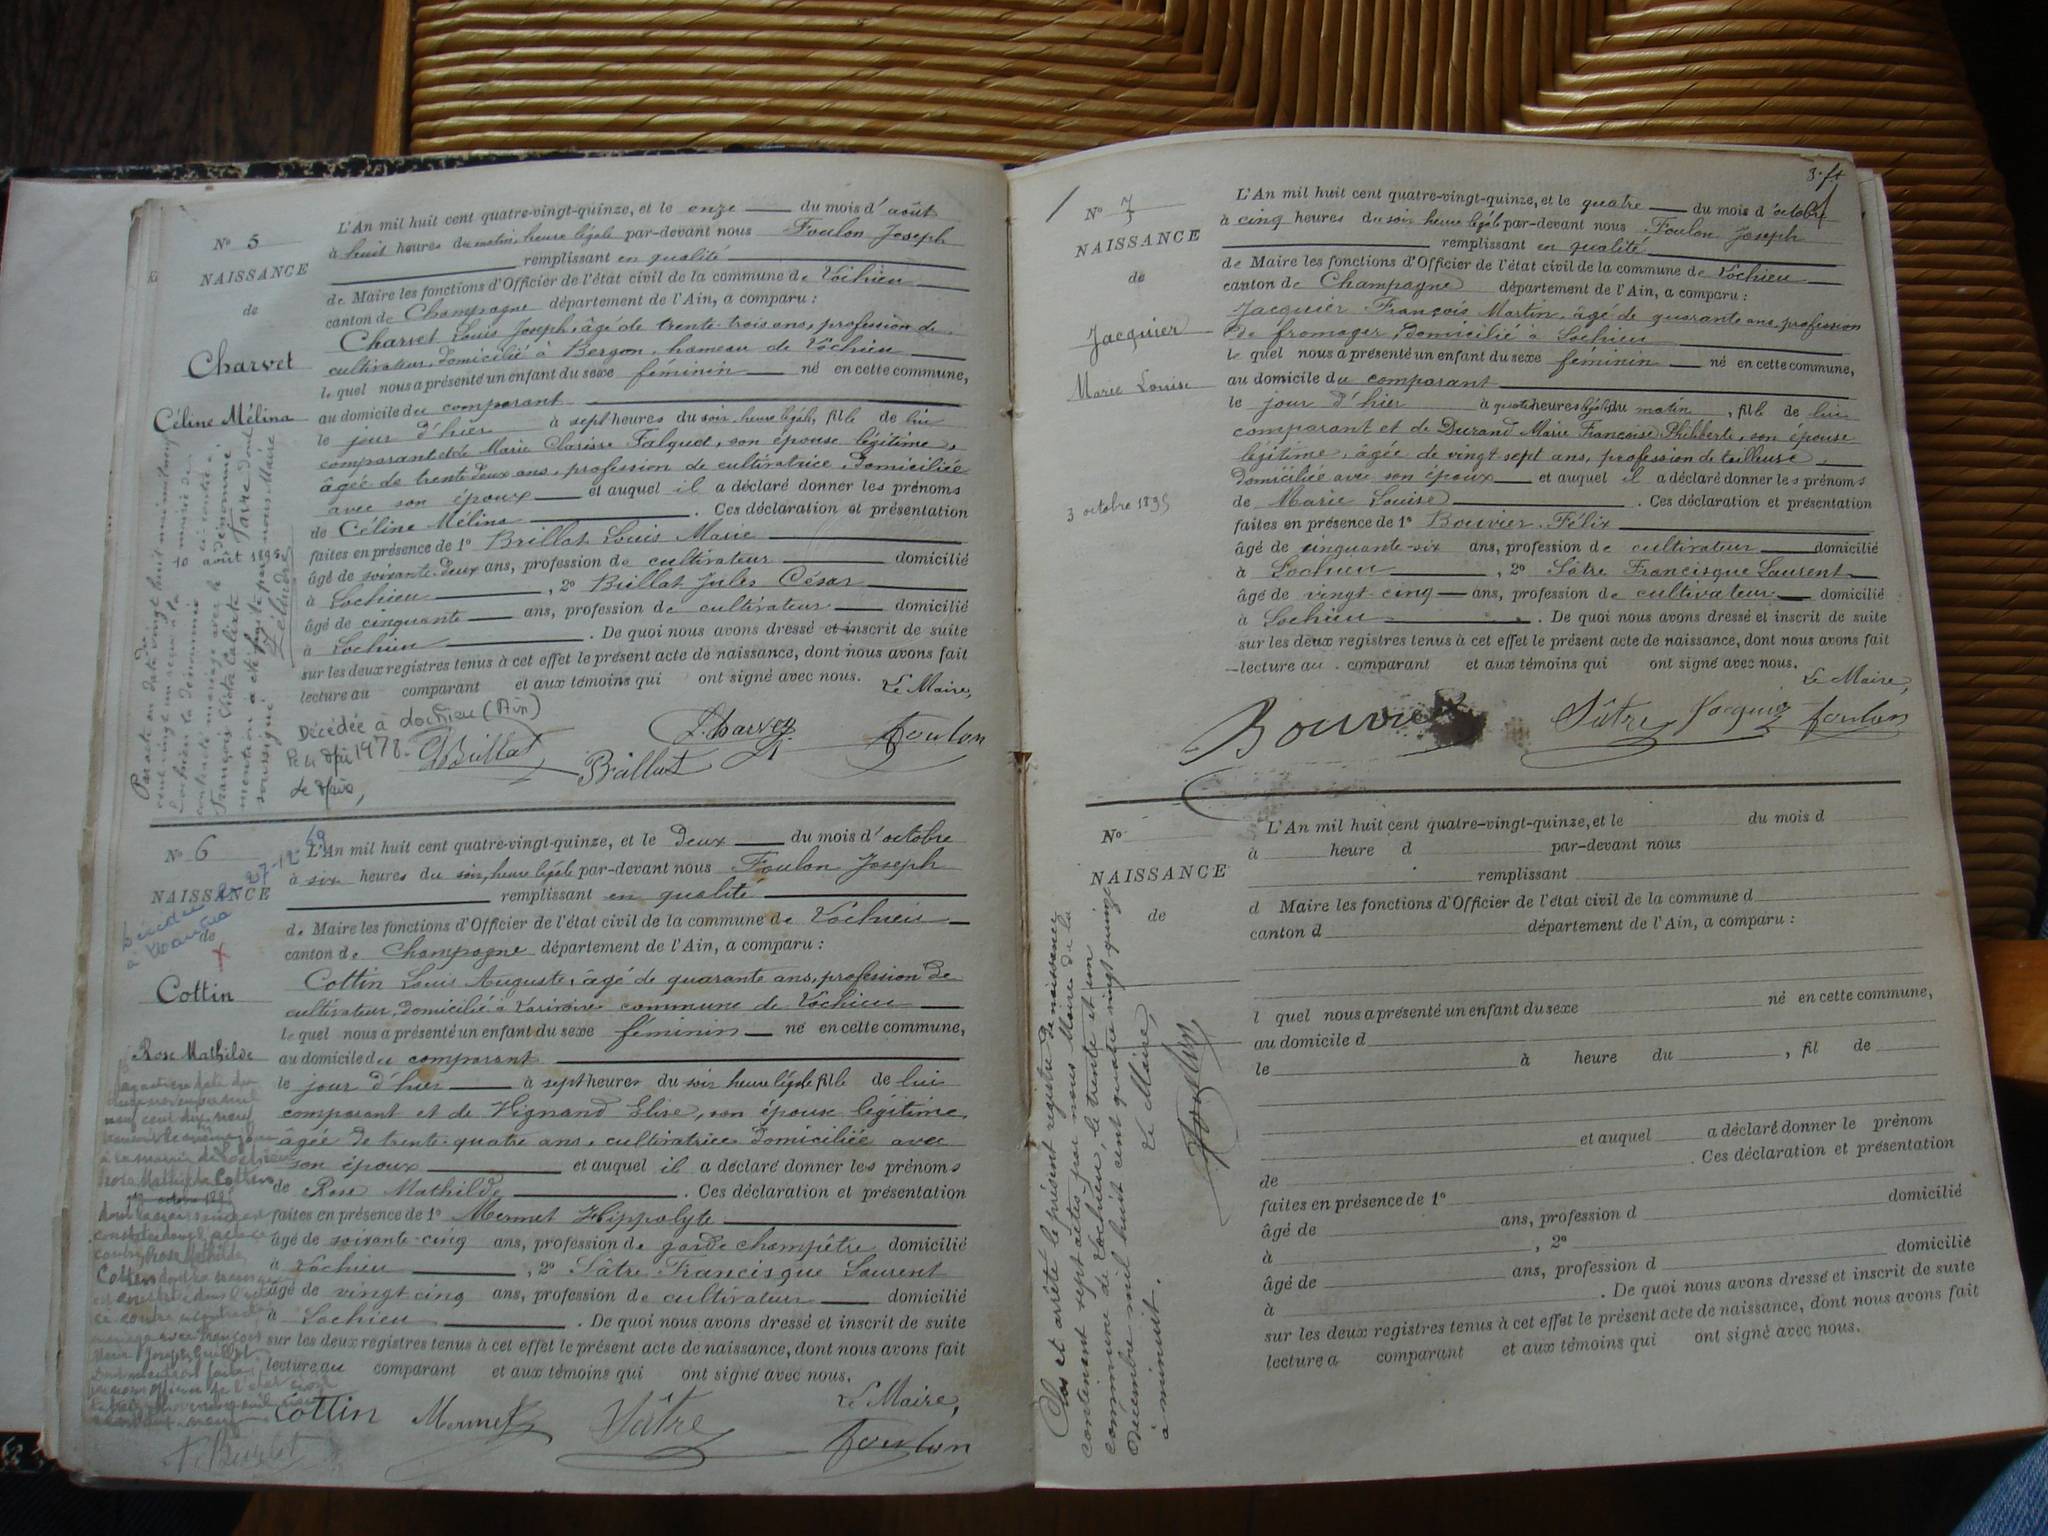 N° 5
NAISSANCE
de
Charvet
Céline Mélina
L'An mil huit cent quatre-vingt-quinze, et le onze du mois d'août
à huit heures du matin, heure légale par-devant nous Foulon Joseph
remplissant en qualité
de Maire les fonctions d'Officier de l'état civil de la commune de Lochieu
canton de Champagne département de l'Ain, a comparu :
Charvet Louis Joseph, âgé de trente-trois ans, profession de
cultivateur, domicilié à Bergon, hameau de Lochieu
lequel nous a présenté un enfant du sexe féminin né en cette commune,
au domicile du comparant
le jour d'hier à sept heures du soir, heure légale, fille de lui
comparant et de Marie Clarisse Falquet, son épouse légitime,
âgée de trente deux ans, profession de cultivatrice, domiciliée
avec son époux et auquel il a déclaré donner les prénoms
de Céline Mélina. Ces déclaration et présentation
faites en présence de 1° Brillat Louis Marie
âgé de soixante-deux ans, profession de cultivateur domicilié
à Lochieu, 2° Brillat Jules César
âgé de cinquante ans, profession de cultivateur domicilié
à Lochieu. De quoi nous avons dressé et inscrit de suite
sur les deux registres tenus à cet effet le présent acte de naissance, dont nous avons fait
lecture au comparant et aux témoins qui ont signé avec nous.
Le Maire,
Décédée à Lochieu (Ain)
1978
Brillat
Brillat
Charvet
Foulon
N° 6
NAISSANCE
de
Cottin
Rose Mathilde
L'An mil huit cent quatre-vingt-quinze, et le deux du mois d'octobre
à six heures du soir, heure légale par-devant nous Foulon Joseph
remplissant en qualité
de Maire les fonctions d'Officier de l'état civil de la commune de Lochieu
canton de Champagne département de l'Ain, a comparu :
Cottin Louis Auguste, âgé de quarante ans, profession de
cultivateur, domicilié à commune de Lochieu
lequel nous a présenté un enfant du sexe féminin né en cette commune,
au domicile du comparant
le jour d'hier à sept heures du soir heure légale fille de lui
comparant et de Vignand Elise, son épouse légitime,
âgée de trente-quatre ans, cultivatrice domiciliée avec
son époux et auquel il a déclaré donner les prénoms
de Rose Mathilde. Ces déclaration et présentation
faites en présence de 1° Mermet Hippolyte
âgé de soixante-cinq ans, profession de garde champêtre domicilié
à Lochieu, 2° Sâtre Francisque Laurent
âgé de vingt cinq ans, profession de cultivateur domicilié
à Lochieu. De quoi nous avons dressé et inscrit de suite
sur les deux registres tenus à cet effet le présent acte de naissance, dont nous avons fait
lecture au comparant et aux témoins qui ont signé avec nous.
Le Maire,
Cottin Mermet Sâtre Foulon
N° 7
NAISSANCE
de
Jacquier
Marie Louise
3 octobre 1895
L'An mil huit cent quatre-vingt-quinze, et le quatre du mois d'octobre
à cinq heures du soir heure légale par-devant nous Foulon Joseph
remplissant en qualité
de Maire les fonctions d'Officier de l'état civil de la commune de Lochieu
canton de Champagne département de l'Ain, a comparu :
Jacquier François Martin, âgé de quarante ans, profession
de fromager, domicilié à Lochieu
lequel nous a présenté un enfant du sexe féminin né en cette commune,
au domicile du comparant
le jour d'hier à quatre heures légales du matin, fille de lui
comparant et de Durand Marie Françoise Philiberte, son épouse
légitime, âgée de vingt sept ans, profession de tailleuse,
domiciliée avec son époux et auquel il a déclaré donner les prénoms
de Marie Louise. Ces déclaration et présentation
faites en présence de 1° Bouvier Félix
âgé de cinquante-six ans, profession de cultivateur domicilié
à Lochieu, 2° Sâtre Francisque Laurent
âgé de vingt-cinq ans, profession de cultivateur domicilié
à Lochieu. De quoi nous avons dressé et inscrit de suite
sur les deux registres tenus à cet effet le présent acte de naissance, dont nous avons fait
lecture au comparant et aux témoins qui ont signé avec nous.
Le Maire,
Bouvier Sâtre Jacquier Foulon
N°
NAISSANCE
de
L'An mil huit cent quatre-vingt-quinze, et le du mois d
à heure d par-devant nous
remplissant
d Maire les fonctions d'Officier de l'état civil de la commune d
canton d département de l'Ain, a comparu :
l quel nous a présenté un enfant du sexe né en cette commune,
au domicile d
le à heure du , fil de
et auquel a déclaré donner le prénom
de . Ces déclaration et présentation
faites en présence de 1°
âgé de ans, profession d domicilié
à , 2°
âgé de ans, profession d domicilié
à . De quoi nous avons dressé et inscrit de suite
sur les deux registres tenus à cet effet le présent acte de naissance, dont nous avons fait
lecture a comparant et aux témoins qui ont signé avec nous.
Clos et arrêté le présent registre de naissance
contenant sept actes par nous Maire de la
commune de Lochieu, le trente et un
Décembre mil huit cent quatre vingt quinze
à minuit.
Le Maire,
Foulon